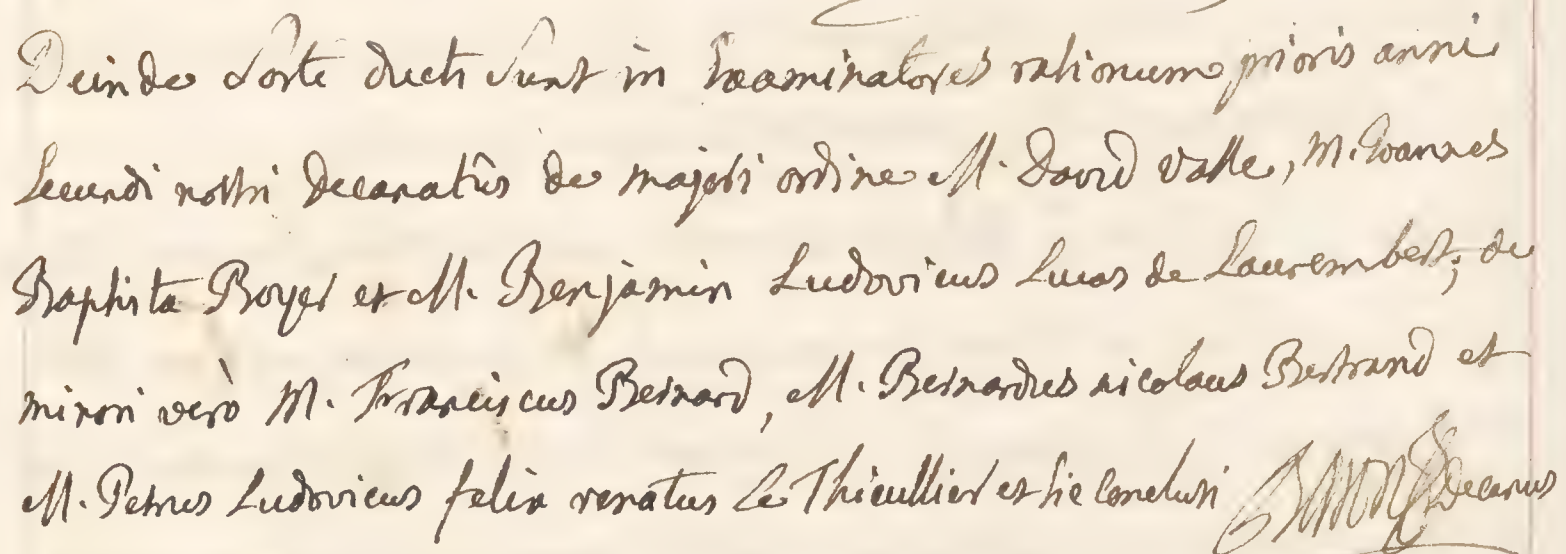 Deinde sorte ducti sunt in Examinatores rationum prioris anni
secundi nostri Decanatûs de majori ordine M. David Vasse, M. Joannes
Baptista Boyer et M. Benjamin Ludovicus Lucas de Laurembert; de
minori verò M. Franciscus Bernard, M. Bernardus nicolaus Bertrand et
M. Petrus Ludovicus felix renatus Le Thieullier et sic conclusi Decanus